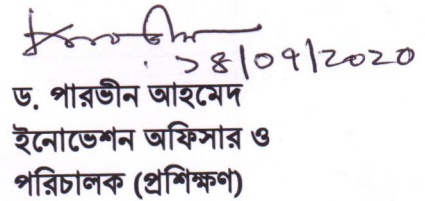 ১৪/০৭/২০২০
ড. পারভীন আহমেদ
ইনোভেশন অফিসার ও
পরিচালক (প্রশিক্ষণ)